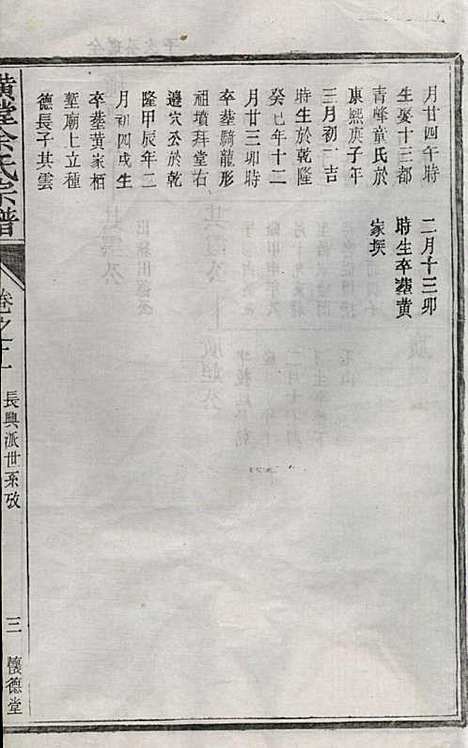 月廿四午時
生娶十三都
青峰童氏於
康熙庚子年
三月初一吉
時生於乾隆
癸巳年十二
月廿三卯時
卒塟騎龍形
祖墳拜堂右
邊穴公於乾
隆甲辰年二
月初四戌生
卒塟黄家栢
塹廟上立種
德長子共雲
二月十三卯
時生卒塟黄
家墺
橫堂余氏宗譜
卷之十一
長興派世系攷
三
懷德堂